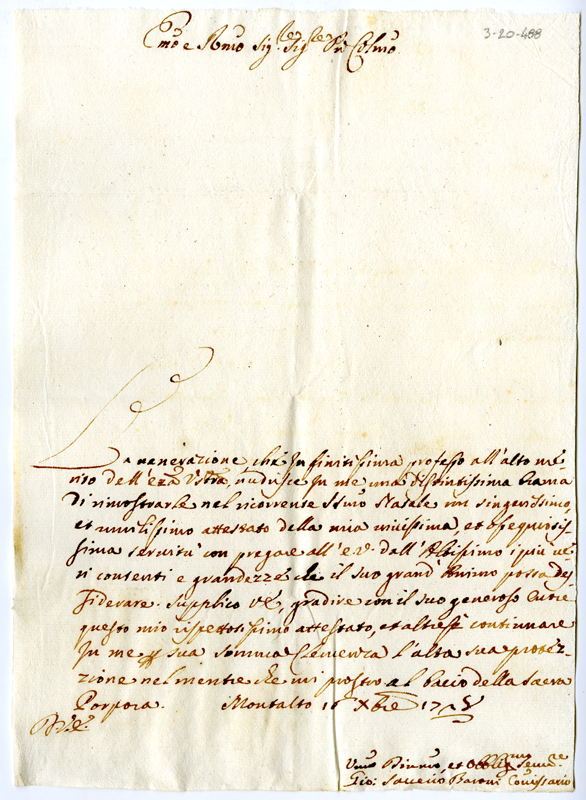 3-20-488
Emo e Rmo Sig.re Sig.re Pñe Colmo
La venerazione, che infinitissima professo all'alto me
rito dell'Eza Vstra, induce in me una distintissima brama
di rimostrarle nel ricorrente Sto Natale un singarissimo,
et umilissimo attestato della mia vivissima, et ossequiosis
sima servitù con pregare all'E.V. dall'Altissimo i più ve
ri contenti e grandezze che il suo grand'Animo possa de
siderare. Supplico V.E. gradire con il suo generoso Cuore
questo mio rispettosissimo attestato, et altresì continuare
in me p sua somma Clemenza l'alta sua protez
zione nel mentre che mi prostro al bacio della sacra
Porpora. Montalto 16 Xbre
Umo et Obblig.mo Ser.re
Gio: Saverio Baroni Comissario